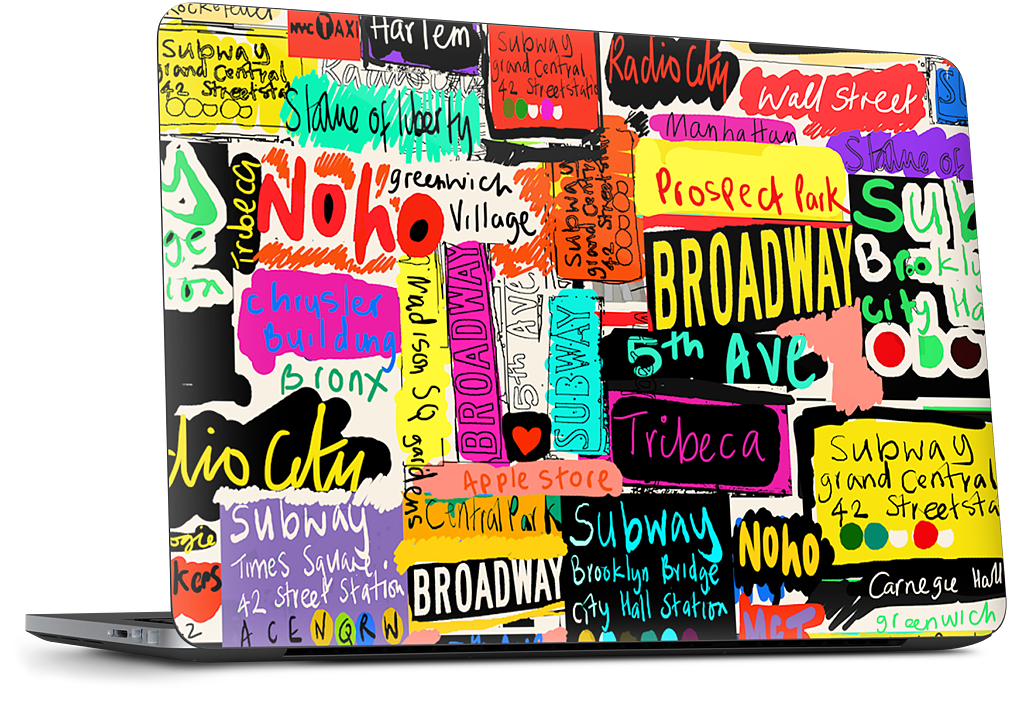 Rockefeller
NYC TAXI
Harlem
Subway
grand Central
42 Streetstati
Radio City
Subway
grand Central
42 Streetstatio
Radio City
Wall Street
Statue of liberty
Manhattan
Statue of
Tribeca
NoHo
greenwich
Village
Subway
grand Central
42 Streetstation
Prospect Park
Sub
Brooklyn
City Ha
BROADWAY
y
ge
ion
chrysler
Building
Bronx
Madison Sq gardens
BROADWAY
5th AVE
SUBWAY
5th AVE
dio City
Apple Store
Tribeca
Subway
grand Central
42 Streetsta
Subway
Times Square
42 Street Station
A C E N Q R W
Central Park
BROADWAY
Subway
Brooklyn Bridge
City Hall Station
NoHo
Carnegie Hall
greenwich
MET
ogie
kers
2